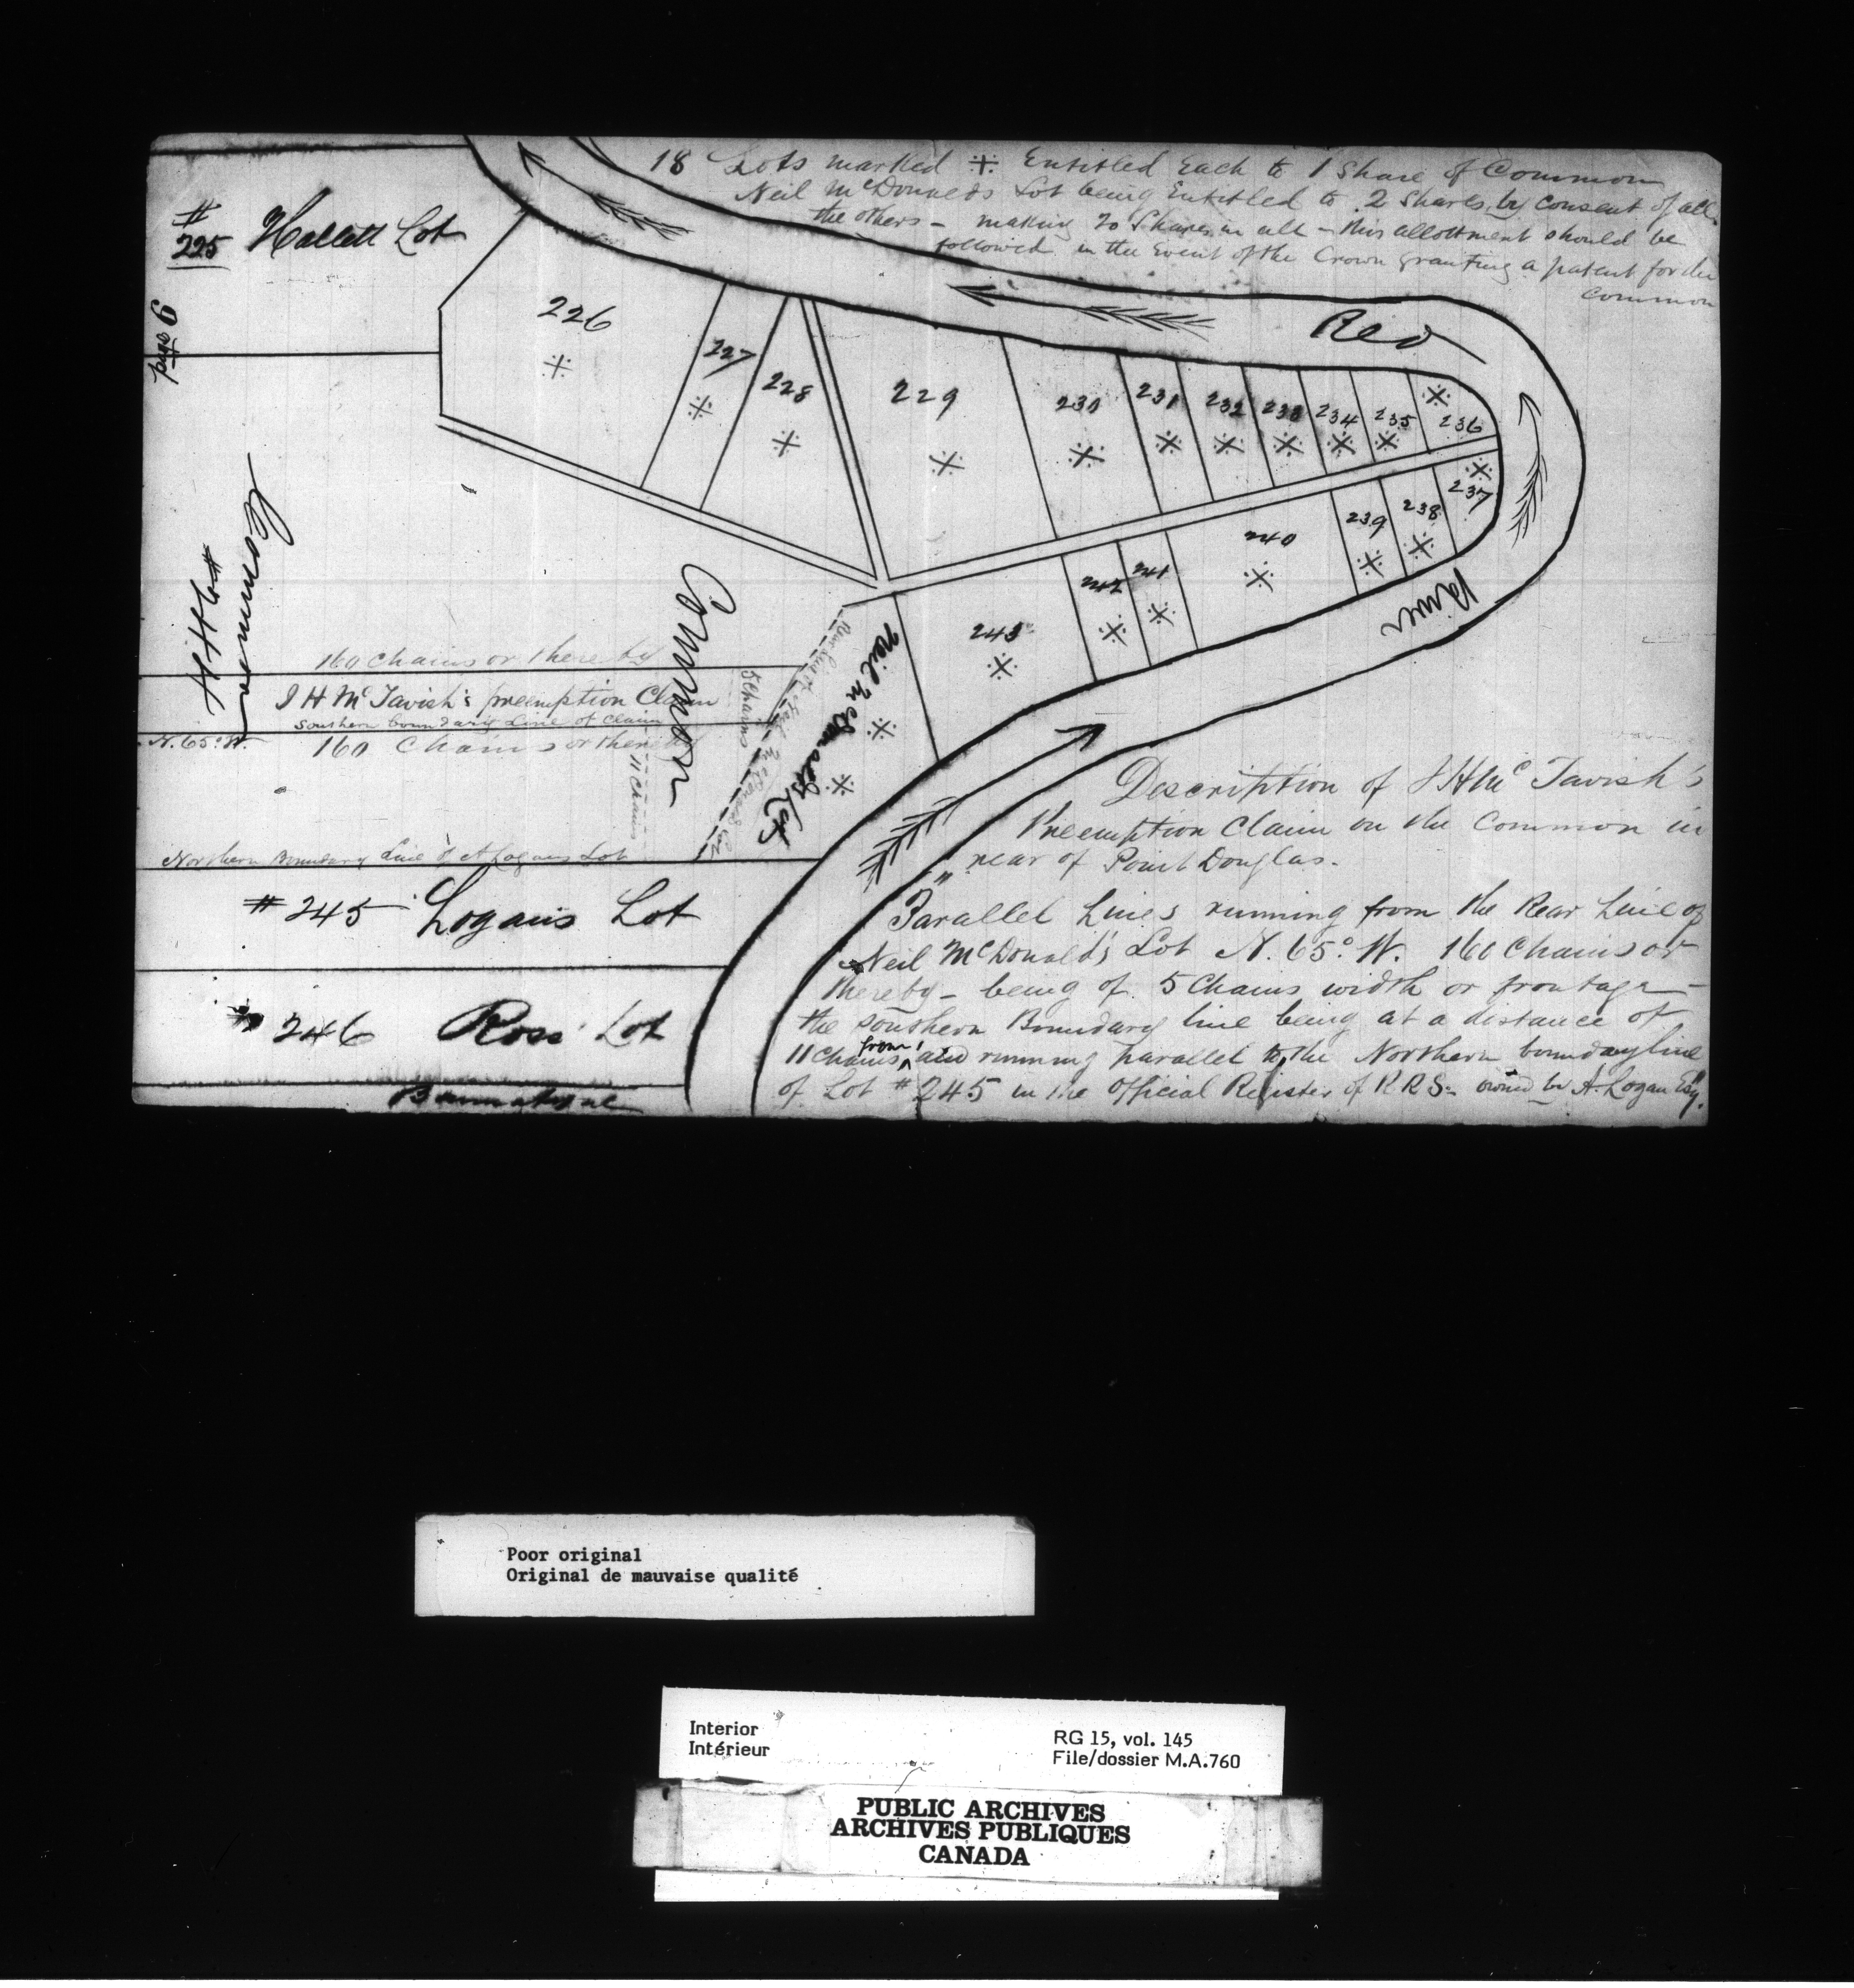 18 Lots marked ※ Entitled Each to 1 Share of Common
Neil McDonald's Lot being Entitled to 2 Shares by consent of all
the others - making 20 Shares in all - this allottment should be
followed in the Event of the Crown granting a patent for the
Common
#
225 Hallett Lot
page 6
226 ※
227 ※
228 ※
229 ※
230 ※
231 ※
232 ※
233 ※
234 ※
235 ※
236 ※
237 ※
238 ※
239 ※
240 ※
241 ※
242 ※
243 ※
Red
River
Common
Common
Neil McDonald's Lot
※ ※
5 Chains
11 Chains
160 Chains or thereby
J H McTavish's preemption Claim
Southern boundary Line of Claim
N. 65° W. 160 Chains or thereby
Northern Boundary Line of A Logans Lot
# 245 Logans Lot
# 246 Ross' Lot
Bannatyne
Description of J H McTavish's
Preemption Claim on the Common in
rear of Point Douglas.
"Parallel Lines running from the Rear Line of
Neil McDonald's Lot N. 65° W. 160 Chains or
thereby - being of 5 Chains width or frontage -
the southern Boundary line being at a distance of
11 Chains from, and running parallel to, the Northern boundary line
of Lot # 245 in the Official Register of R R S - owned by A. Logan Esq."
Poor original
Original de mauvaise qualité
Interior
Intérieur
RG 15, vol. 145
File/dossier M.A.760
PUBLIC ARCHIVES
ARCHIVES PUBLIQUES
CANADA